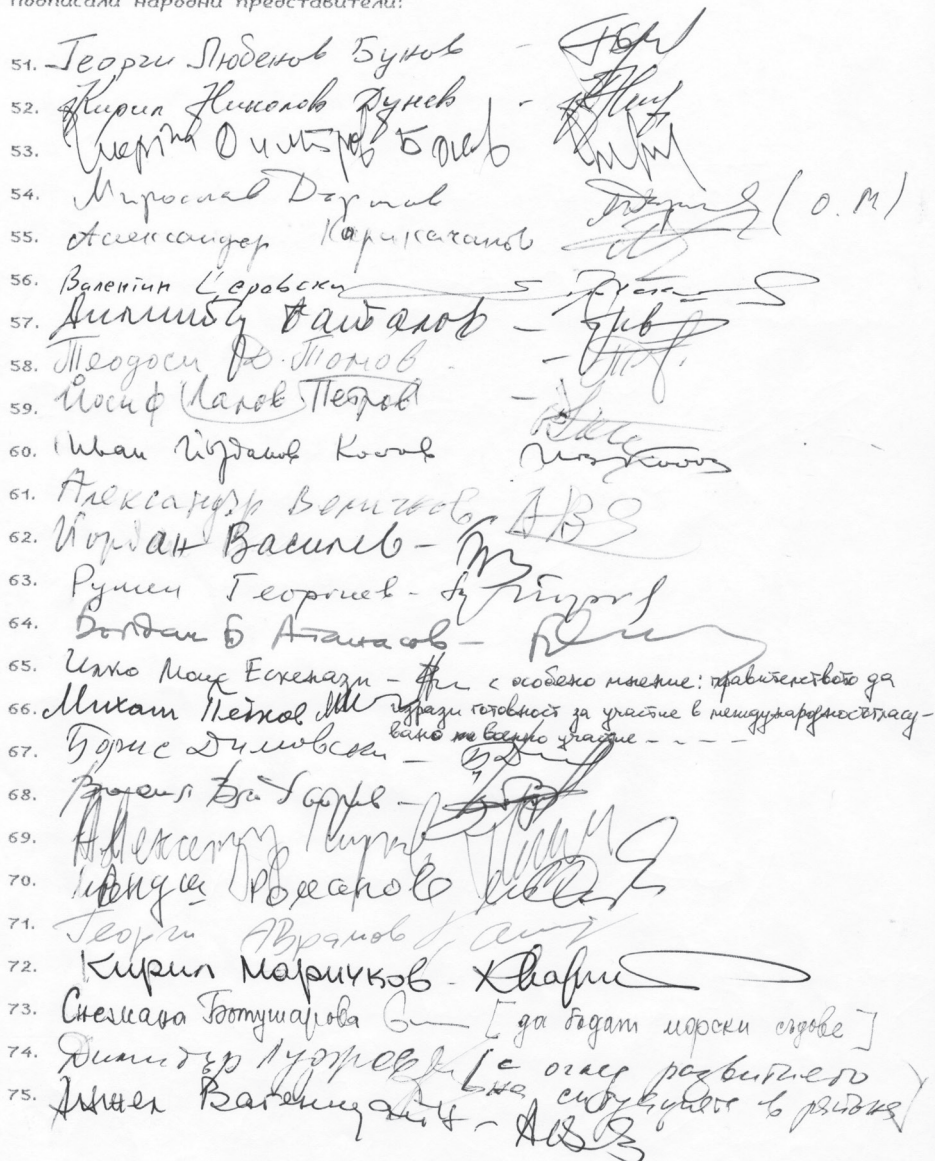 Подписали народни представители:
51. Георги Любенов Бунов -
52. Кирил Николов Дунев -
53. Димитров
54. Мирослав Дърмов (О.М)
55. Александър Каракачанов
56. Валентин Церовски
57. Димитър Баталов -
58. Теодоси Д. Томов -
59. Йосиф Петров -
60. Иван Йорданов Костов
61. Александър Величков
62. Йордан Василев -
63. Румен Георгиев -
64. Богдан Б Атанасов -
65. Илко Ескенази - с особено мнение: правителството да
66. Михаил Петков изрази готовност за участие в международносъгласу-
вано военно участие - - - -
67. Борис Димовски -
68.
69. Александър
70. Романов
71. Георги Аврамов
72. Кирил Маричков -
73. Снежана Ботушарова [да бъдат морски съдове]
74. Димитър Луджев (с оглед развитието
на ситуацията в района)
75. Анжел Вагенщайн -